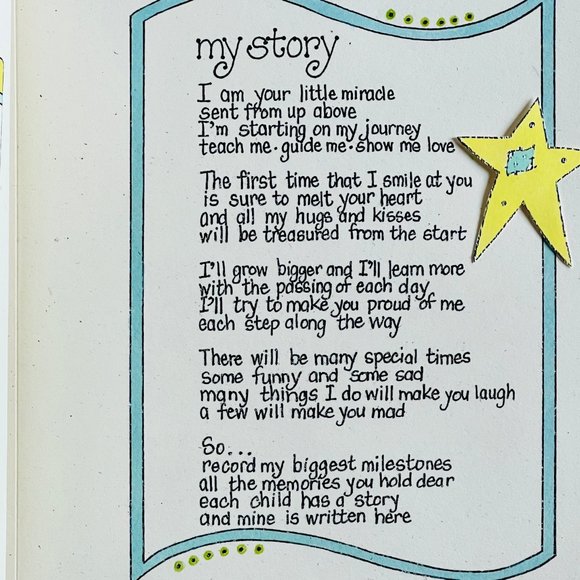 my story
I am your little miracle
sent from up above
I'm starting on my journey
teach me • guide me • show me love
The first time that I smile at you
is sure to melt your heart
and all my hugs and kisses
will be treasured from the start
I'll grow bigger and I'll learn more
with the passing of each day
I'll try to make you proud of me
each step along the way
There will be many special times
some funny and some sad
many things I do will make you laugh
a few will make you mad
So...
record my biggest milestones
all the memories you hold dear
each child has a story
and mine is written here